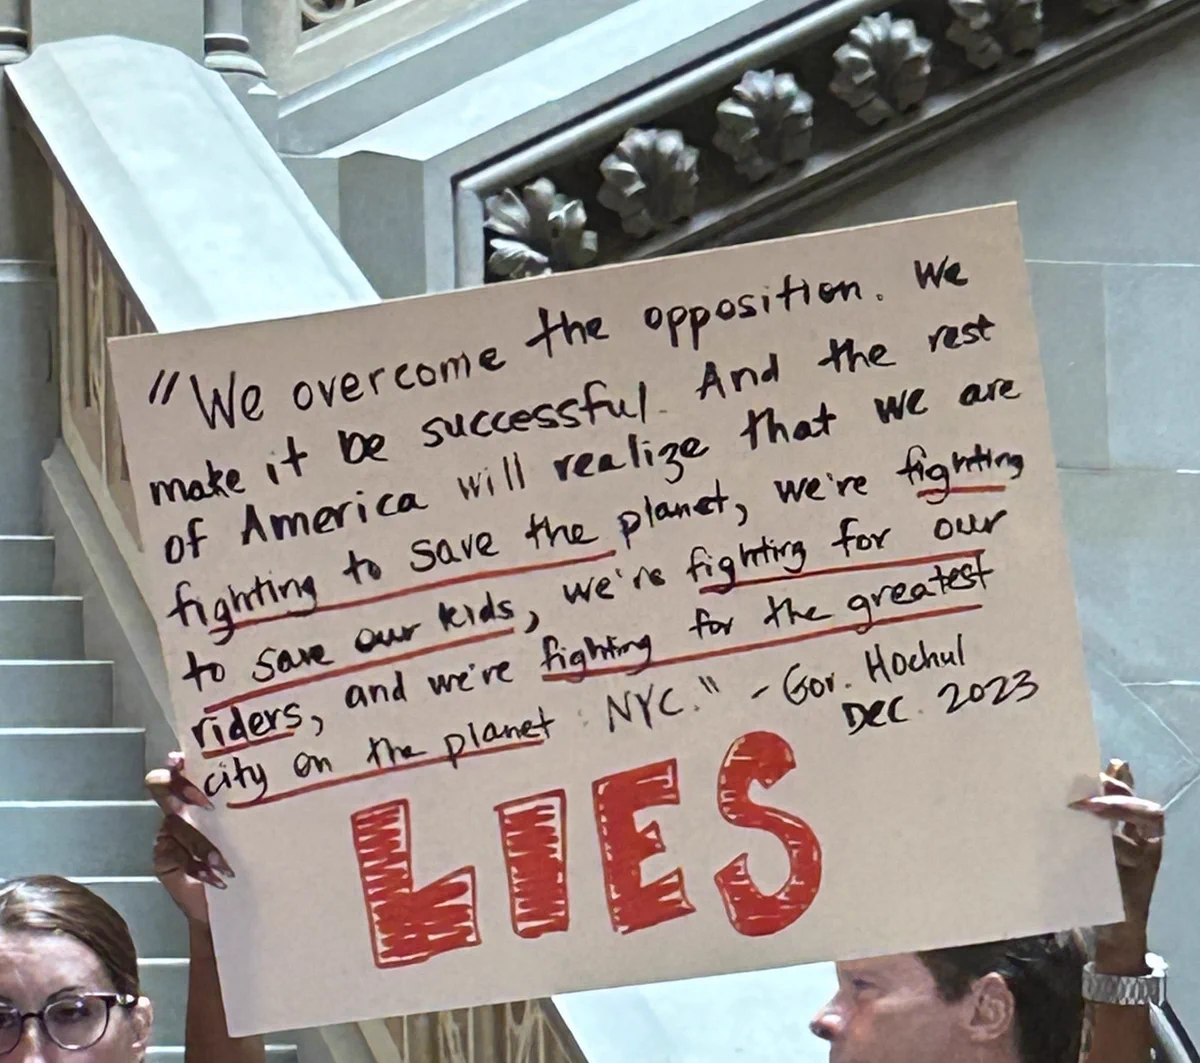 "We overcome the opposition. We
make it be successful. And the rest
of America will realize that we are
fighting to save the planet, we're fighting
to save our kids, we're fighting for our
riders, and we're fighting for the greatest
city on the planet : NYC." - Gov. Hochul
DEC. 2023
LIES